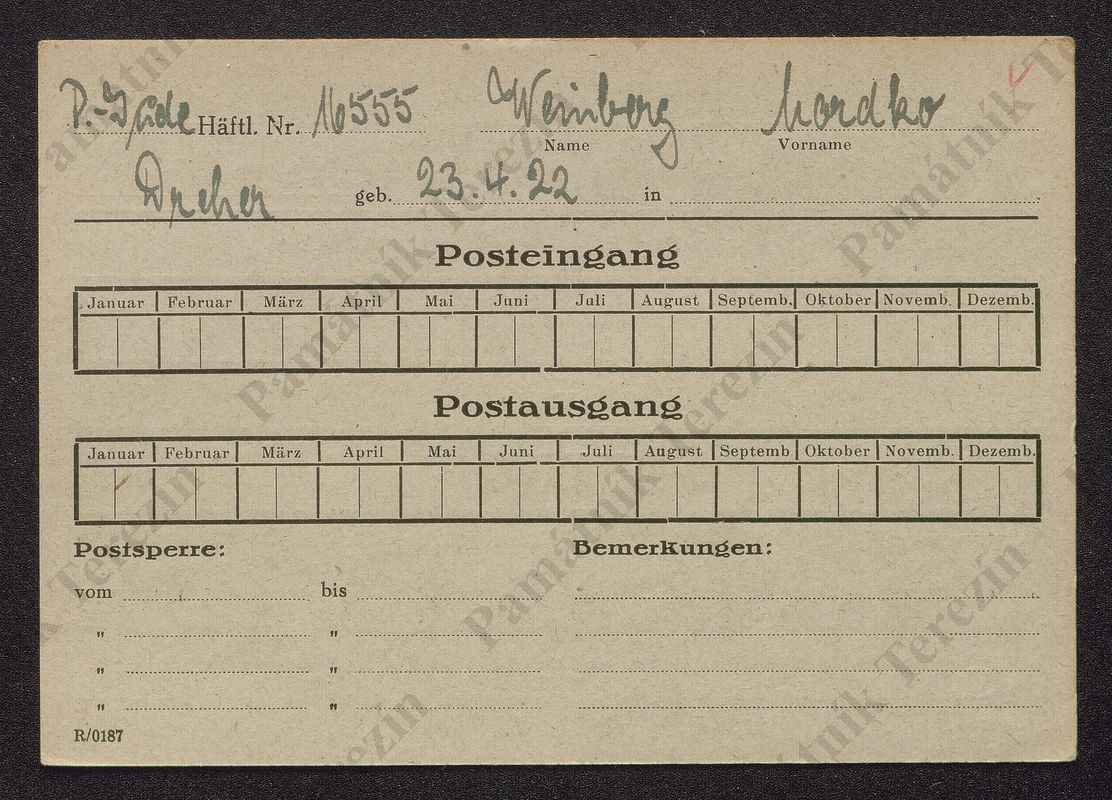 P.-Jude Häftl. Nr. 16555 Weinberg Mordko
Name Vorname
Dreher geb. 23.4.22 in
Posteingang
Januar Februar März April Mai Juni Juli August Septemb. Oktober Novemb. Dezemb.
Postausgang
Januar Februar März April Mai Juni Juli August Septemb Oktober Novemb. Dezemb.
Postsperre: Bemerkungen:
vom bis
" "
" "
" "
R/0187
Památník Terezín